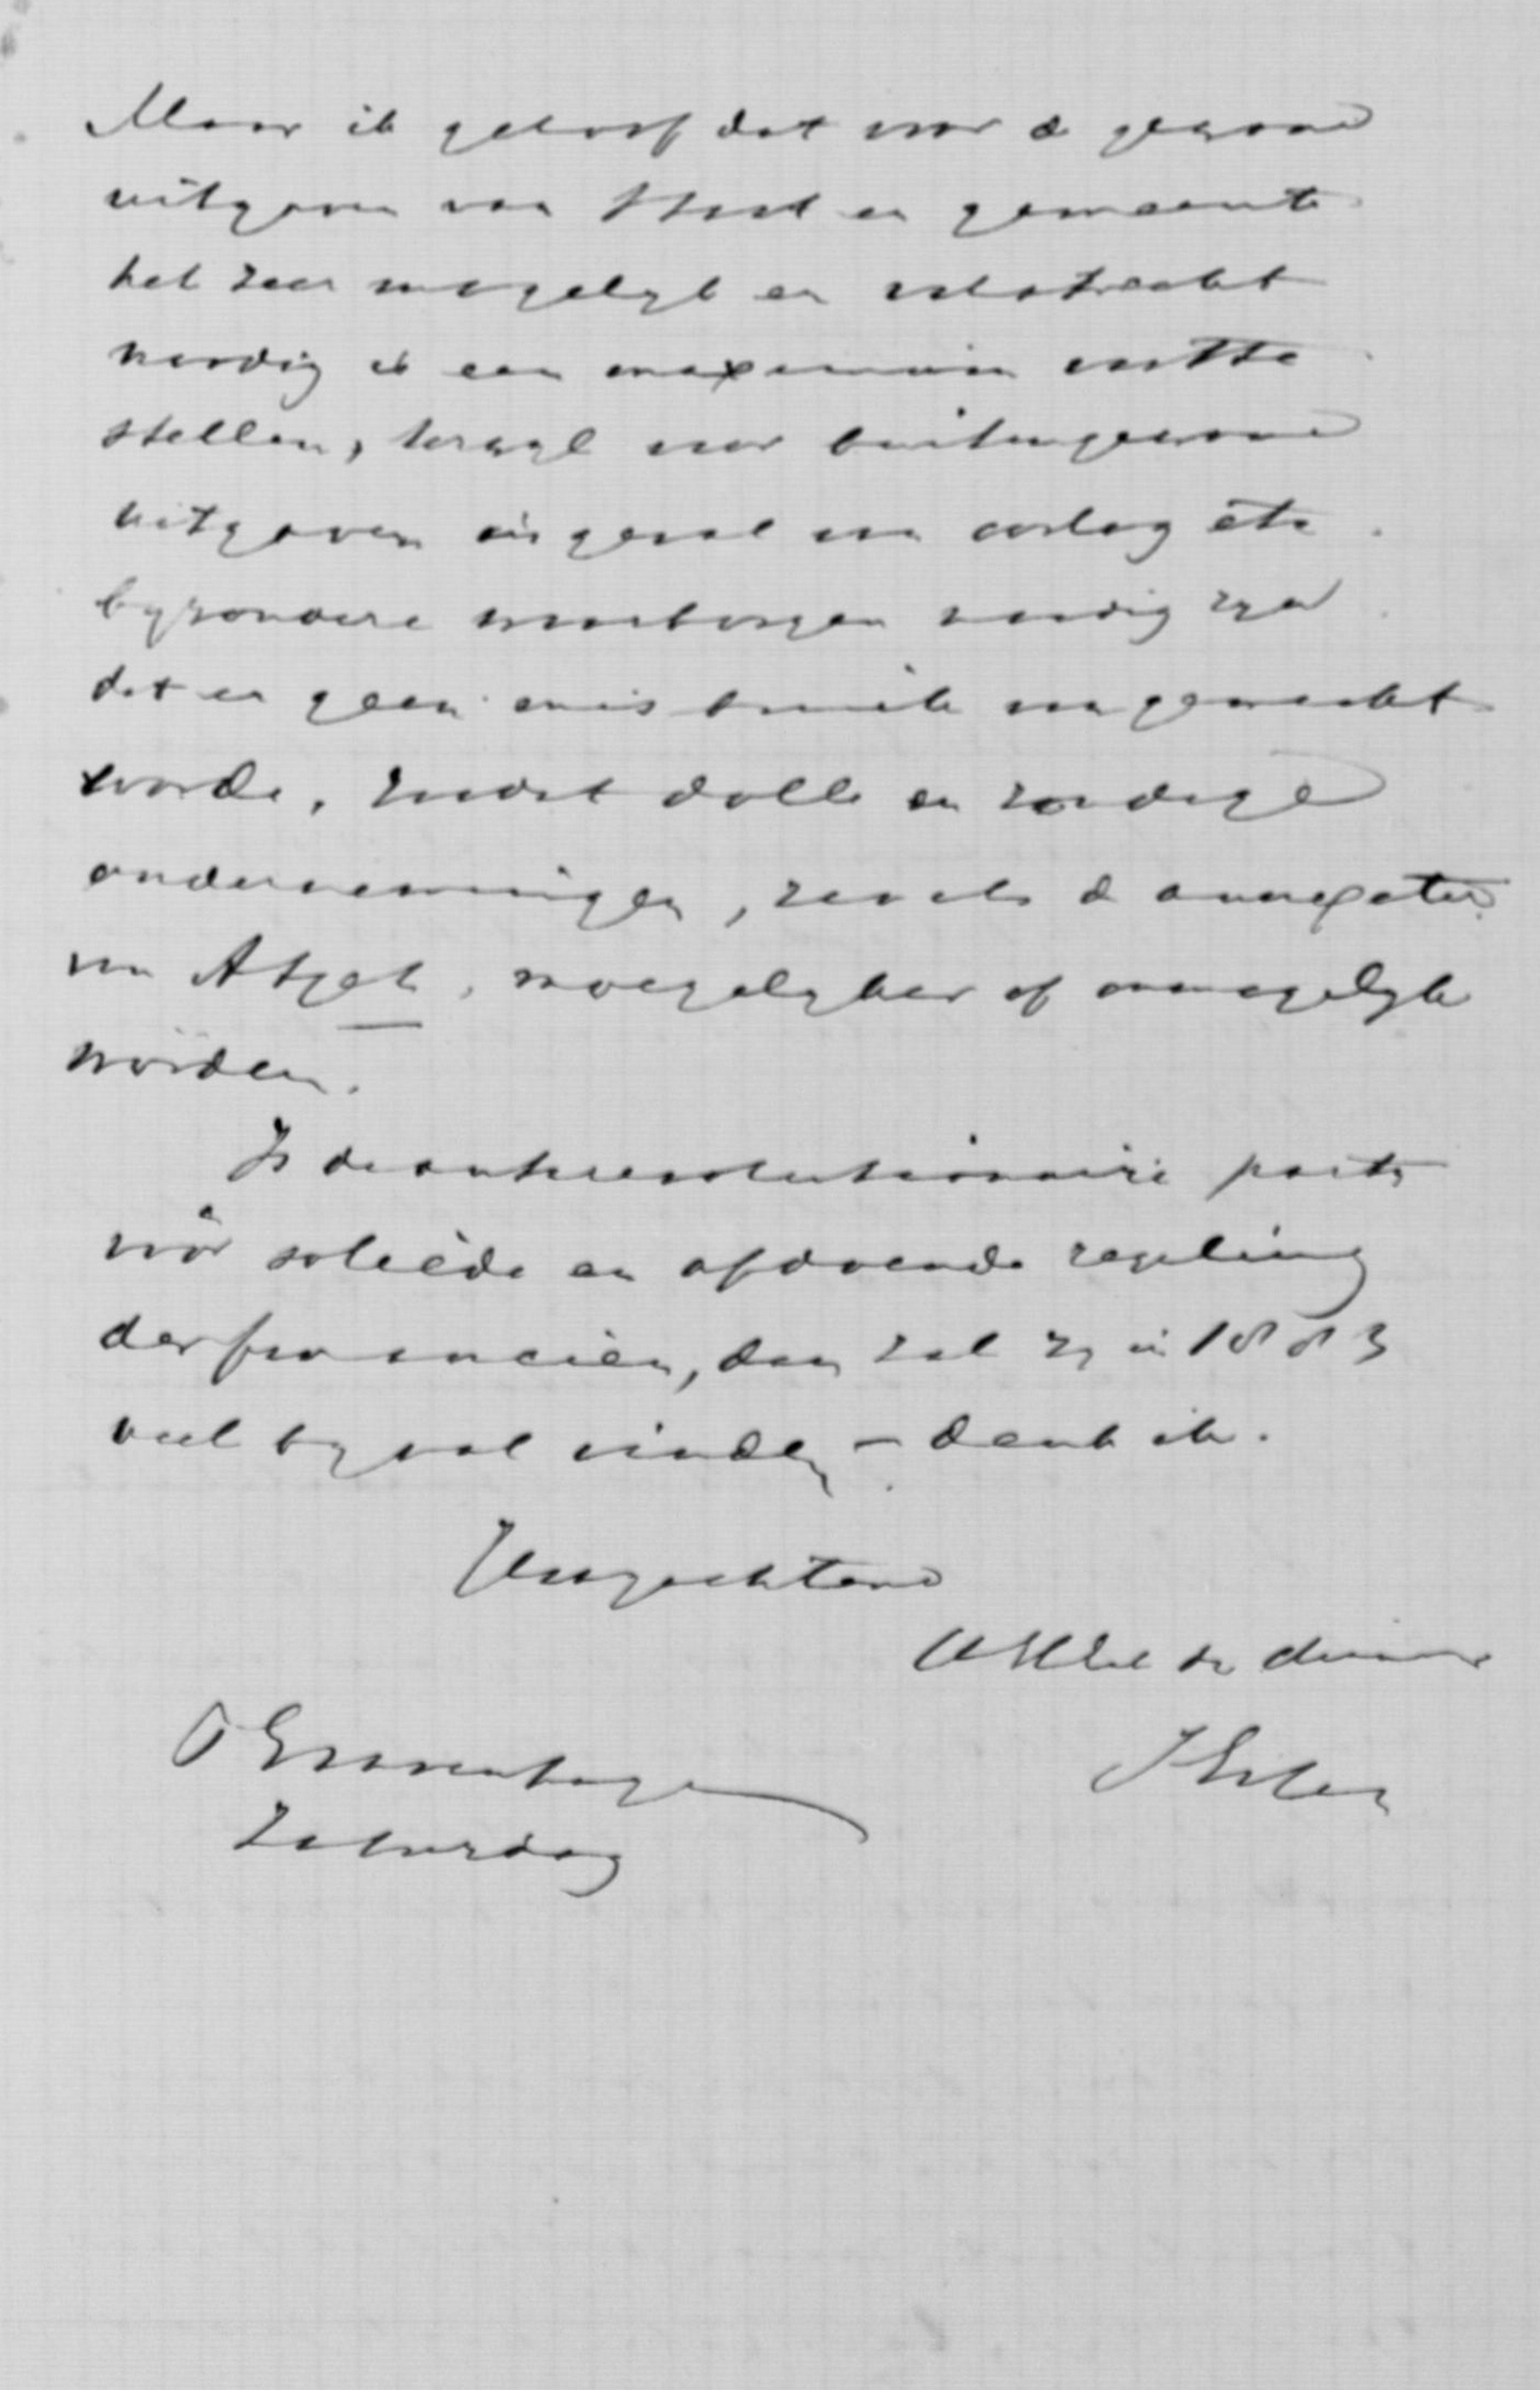 Maar ik geloof dat voor de gewone
uitgaven van Staat en gemeente
het zeer mogelyk en volstrekt
noodig is een maximum vast te
stellen, terwyl voor buitengewone
uitgaven in geval van oorlog etc.
byzondere waarborgen noodig zyn
dat er geen misbruik van gemaakt
worde, zoodat dolle en zondige
ondernemingen, zooals de annexatie
van Atjeh, moeyelyker of onmogelyk
worden.
Is de antirevolutionaire party
vóór soliede en afdoende regeling
der financiën, dan zal zy in 1883
veel byval vinden – denk ik.
Hoogachtend
UHEd dw dienaar
's Gravenhage
Zaturdag